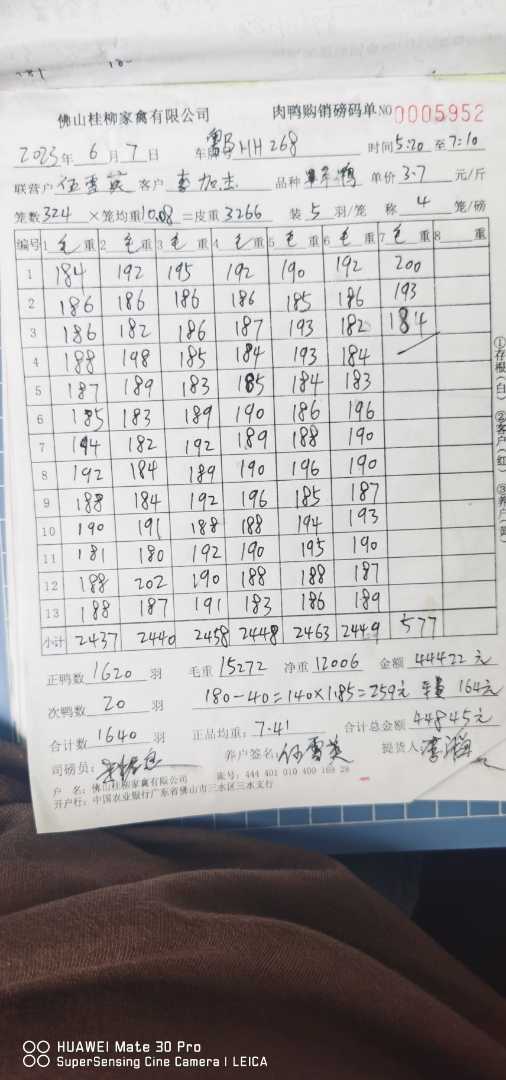 佛山桂柳家禽有限公司 肉鸭购销磅码单 NO 0005952
2023年 6月 7日 车号 HH268 时间 5:20 至 7:10
联营户 伍雪英 客户 品种 鸭 单价 3.7 元/斤
笼数 324 ×笼均重 10.08 =皮重 3266 装 5 羽/笼 称 4 笼/磅
编号 1 毛 重 2 毛 重 3 毛 重 4 毛 重 5 毛 重 6 毛 重 7 毛 重 8 重
1 184 192 195 192 190 192 200
2 186 186 186 186 185 186 193
3 186 182 186 187 193 182 184
4 188 198 185 184 193 184
5 187 189 183 185 184 183
6 185 183 189 190 186 196
7 194 182 192 189 188 190
8 192 184 189 190 196 190
9 188 184 192 196 185 187
10 190 191 188 188 194 193
11 181 180 192 190 195 190
12 188 202 190 188 188 187
13 188 187 191 183 186 189
小计 2437 2440 2458 2448 2463 2449 577
正鸭数 1620 羽 毛重 15272 净重 12006 金额 44422 元
次鸭数 20 羽 180-40=140×1.85=259元 164元
合计数 1640 羽 正品均重: 7.41 合计总金额 44845元
司磅员: 养户签名: 伍雪英 提货人
户 名: 佛山桂柳家禽有限公司 账号: 444 401 010 400 169 28
开户行: 中国农业银行广东省佛山市三水区三水支行
①存根(白) ②客户(红) ③养户(黄)
HUAWEI Mate 30 Pro
SuperSensing Cine Camera | LEICA